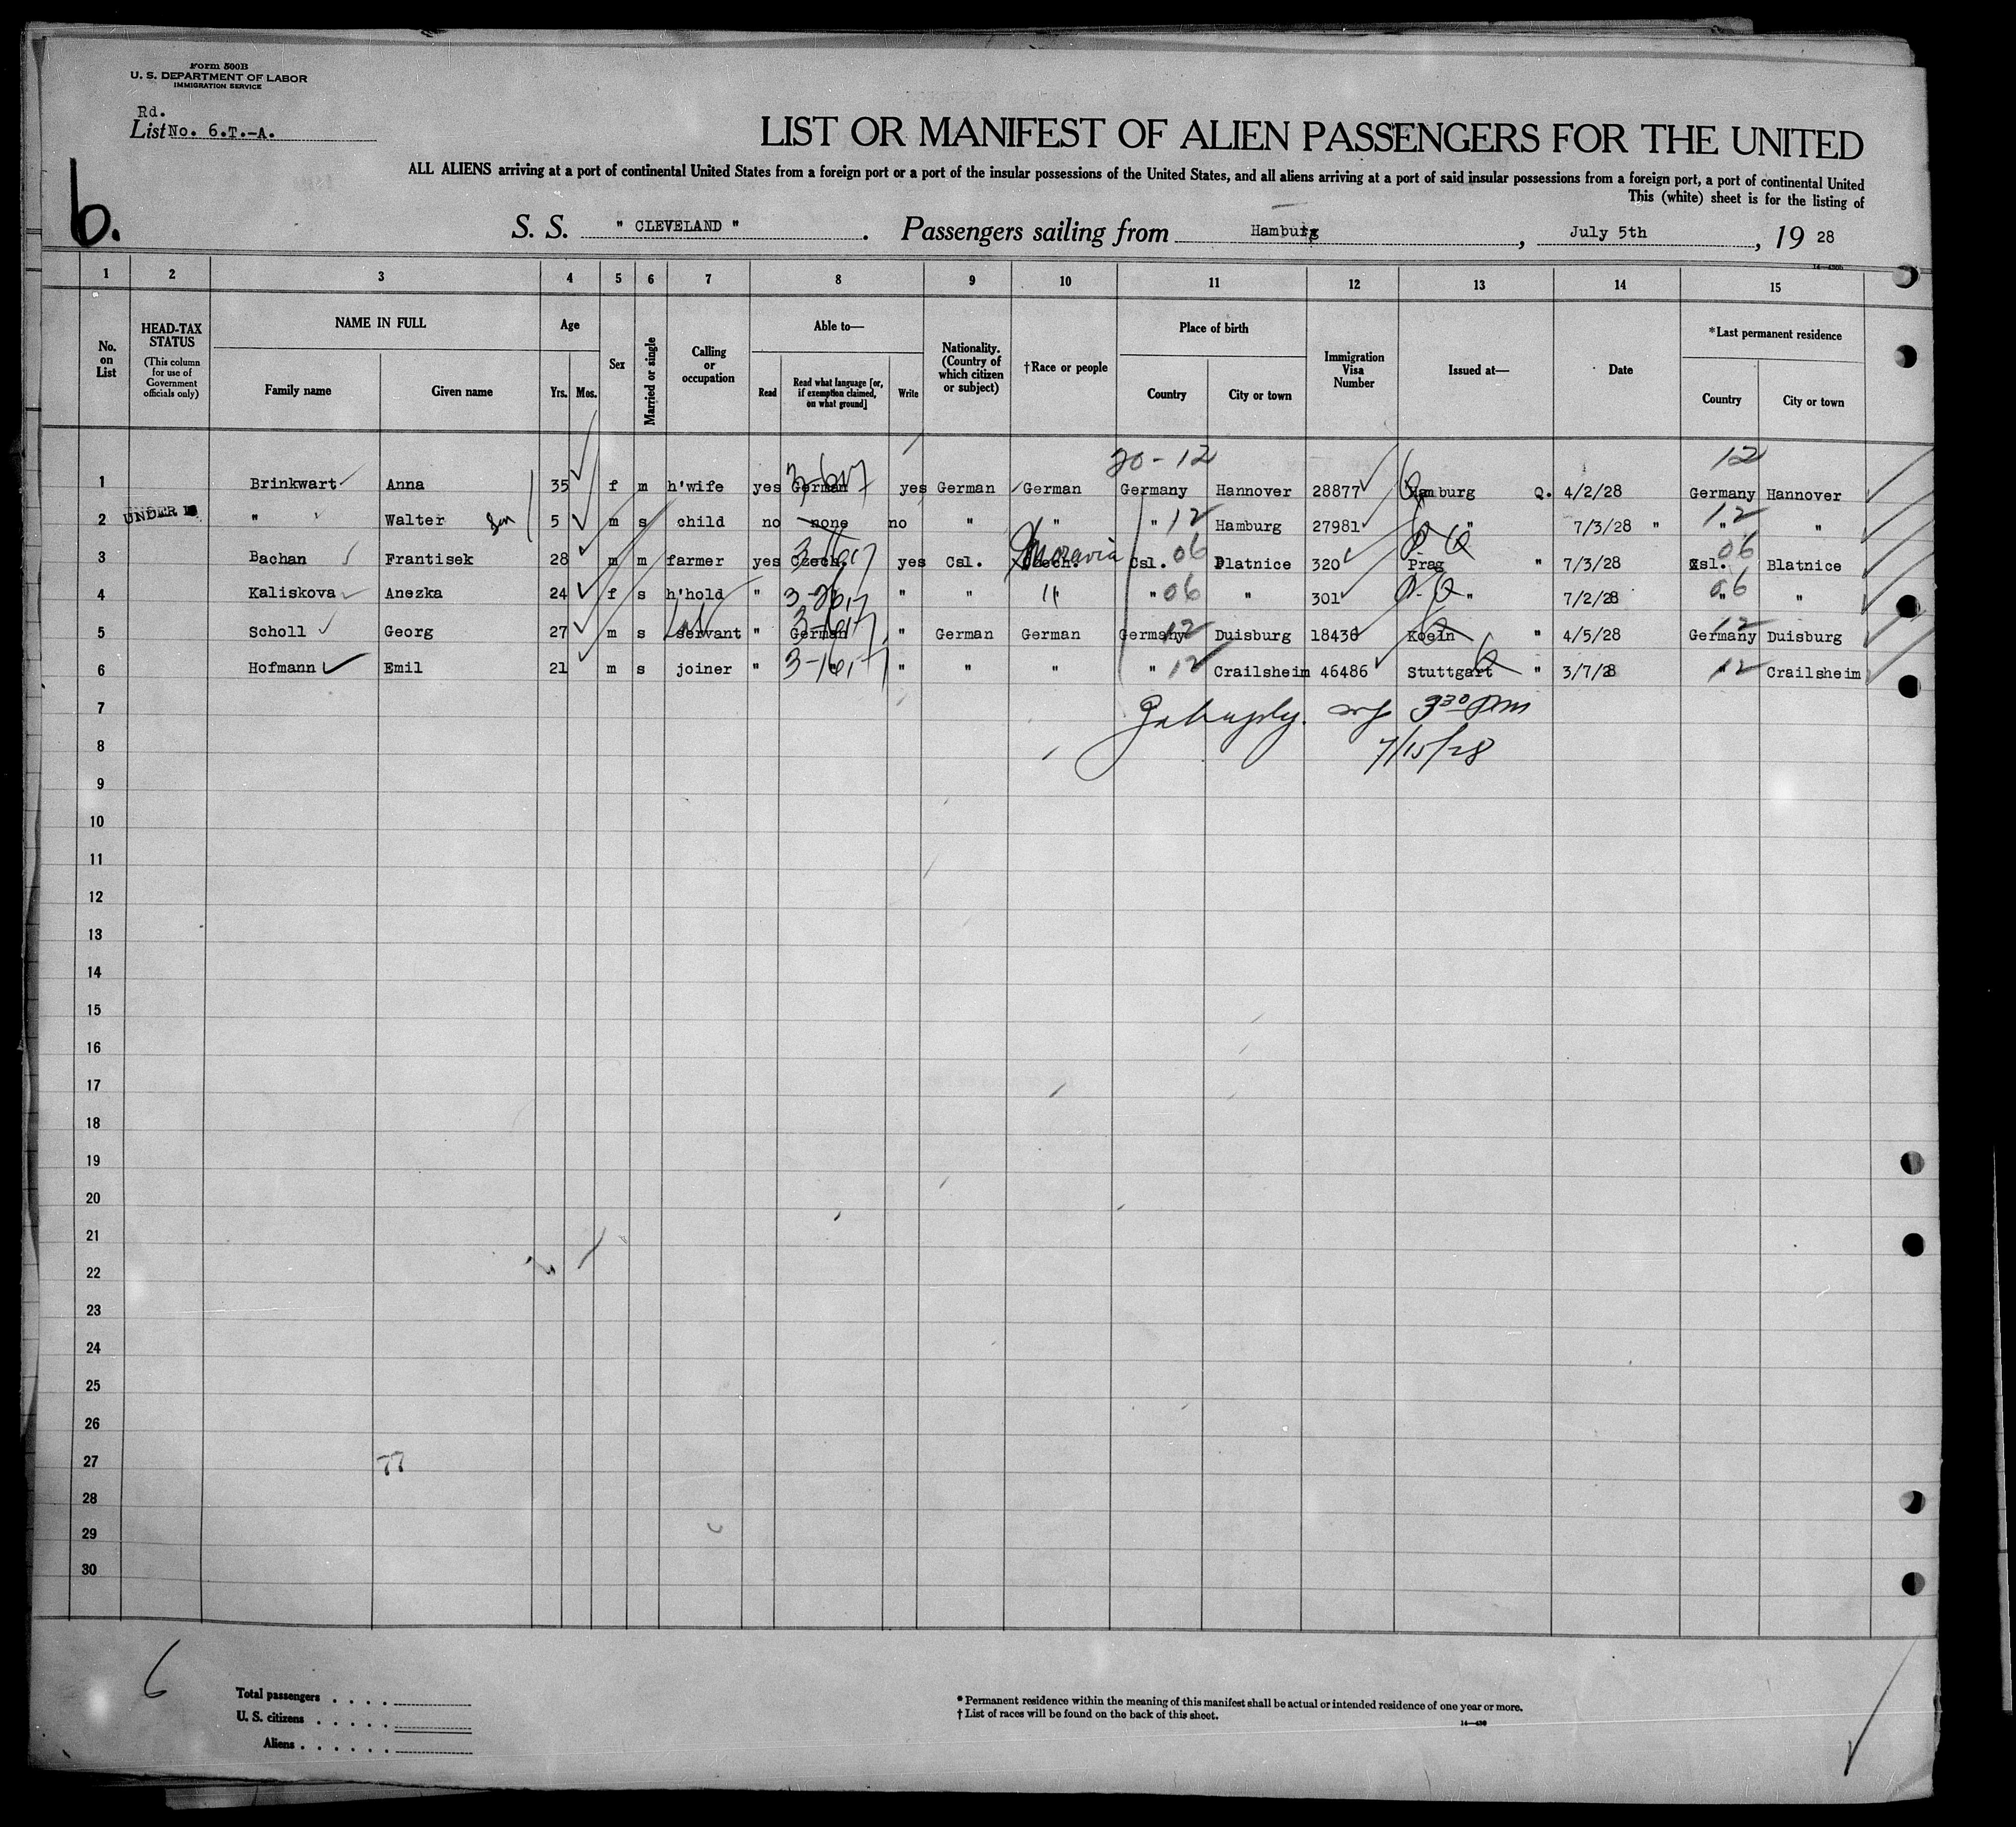 Form 500B
U. S. DEPARTMENT OF LABOR
IMMIGRATION SERVICE
Rd.
List No. 6.T.-A.
LIST OR MANIFEST OF ALIEN PASSENGERS FOR THE UNITED
ALL ALIENS arriving at a port of continental United States from a foreign port or a port of the insular possessions of the United States, and all aliens arriving at a port of said insular possessions from a foreign port, a port of continental United
This (white) sheet is for the listing of
6.
S. S. " CLEVELAND ". Passengers sailing from Hamburg, July 5th, 19 28
1 2 3 4 5 6 7 8 9 10 11 12 13 14 15
No. on List
HEAD-TAX STATUS (This column for use of Government officials only)
NAME IN FULL
Family name Given name
Age
Yrs. Mos.
Sex
Married or single
Calling or occupation
Able to—
Read
Read what language [or, if exemption claimed, on what ground]
Write
Nationality. (Country of which citizen or subject)
†Race or people
Place of birth
Country City or town
Immigration Visa Number
Issued at—
Date
*Last permanent residence
Country City or town
20-12 12
1 Brinkwart Anna 35 f m h'wife yes German yes German German Germany Hannover 28877 Hamburg Q. 4/2/28 Germany Hannover
2 UNDER " Walter son 5 m s child no none no " " " 12 Hamburg 27981 " 7/3/28 " " 12 "
3 Bachan Frantisek 28 m m farmer yes Czech. yes Csl. Czech. Moravia Csl. 06 Blatnice 320 Prag " 7/3/28 Csl. 06 Blatnice
4 Kaliskova Anezka 24 f s h'hold " " " " " 06 " 301 " 7/2/28 " 06 "
5 Scholl Georg 27 m s servant " German " German German Germany 12 Duisburg 18436 Koeln " 4/5/28 Germany 12 Duisburg
6 Hofmann Emil 21 m s joiner " " " " " " 12 Crailsheim 46486 Stuttgart " 3/7/28 " 12 Crailsheim
7 3 30 pm
8 7/15/28
9
10
11
12
13
14
15
16
17
18
19
20
21
22
23
24
25
26
27 77
28
29
30
6
Total passengers . . . .
U. S. citizens . . . . .
Aliens . . . . . .
* Permanent residence within the meaning of this manifest shall be actual or intended residence of one year or more.
† List of races will be found on the back of this sheet.
14—430